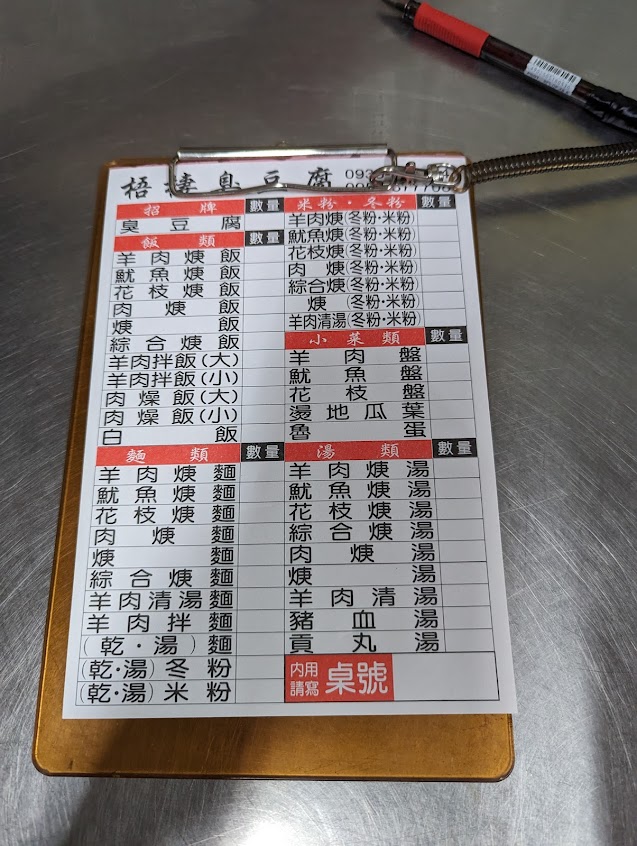 梧棲臭豆腐
招牌 數量
臭豆腐
飯類 數量
羊肉焿飯
魷魚焿飯
花枝焿飯
肉焿飯
焿飯
綜合焿飯
羊肉拌飯(大)
羊肉拌飯(小)
肉燥飯(大)
肉燥飯(小)
白飯
麵類 數量
羊肉焿麵
魷魚焿麵
花枝焿麵
肉焿麵
焿麵
綜合焿麵
羊肉清湯麵
羊肉拌麵
(乾·湯)麵
(乾·湯)冬粉
(乾·湯)米粉
米粉·冬粉 數量
羊肉焿(冬粉·米粉)
魷魚焿(冬粉·米粉)
花枝焿(冬粉·米粉)
肉焿(冬粉·米粉)
綜合焿(冬粉·米粉)
焿(冬粉·米粉)
羊肉清湯(冬粉·米粉)
小菜類 數量
羊肉盤
魷魚盤
花枝盤
燙地瓜葉
魯蛋
湯類 數量
羊肉焿湯
魷魚焿湯
花枝焿湯
綜合焿湯
肉焿湯
焿湯
羊肉清湯
豬血湯
貢丸湯
内用
請寫 桌號